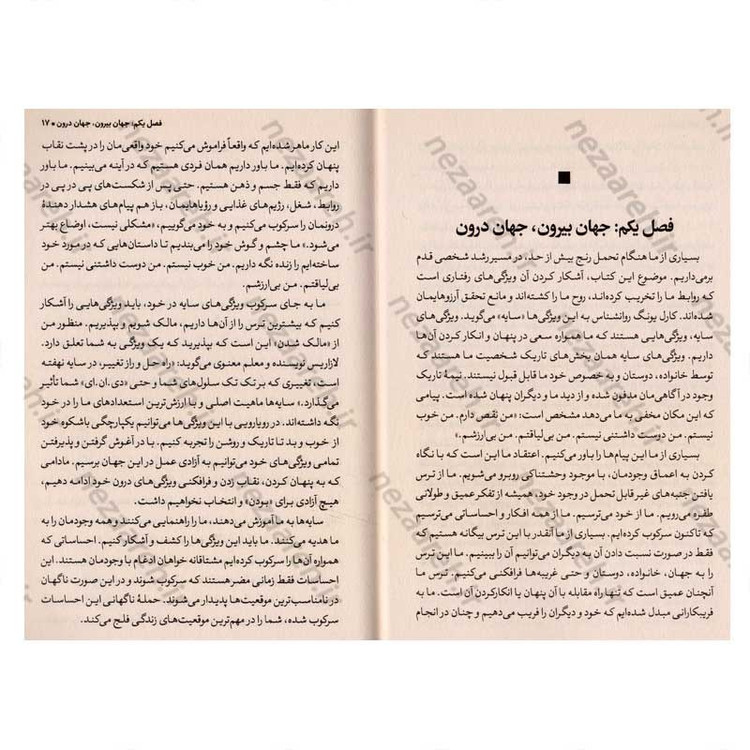 فصل یکم: جهان بیرون، جهان درون
بسیاری از ما هنگام تحمل رنج بیش از حد، در مسیر رشد شخصی قدم
برمی‌داریم. موضوع این کتاب، آشکار کردن آن ویژگی‌های رفتاری است
که روابط ما را تخریب کرده‌اند، روح ما را کشته‌اند و مانع تحقق آرزوهایمان
شده‌اند. کارل یونگ روانشناس به این ویژگی‌ها «سایه» می‌گوید. ویژگی‌های
سایه، ویژگی‌هایی هستند که ما همواره سعی در پنهان و انکار کردن آن‌ها
داریم. ویژگی‌های سایه همان بخش‌های تاریک شخصیت ما هستند که
توسط خانواده، دوستان و به خصوص خود ما قابل قبول نیستند. نیمهٔ تاریک
وجود در آگاهی‌مان مدفون شده و از دید ما و دیگران پنهان شده است. پیامی
که این مکان مخفی به ما می‌دهد مشخص است: «من نقص دارم. من خوب
نیستم. من دوست داشتنی نیستم. من بی‌لیاقتم. من بی‌ارزشم.»
بسیاری از ما این پیام‌ها را باور می‌کنیم. اعتقاد ما این است که با نگاه
کردن به اعماق وجودمان، با موجود وحشتناکی روبرو می‌شویم. ما از ترس
یافتن جنبه‌های غیر قابل تحمل در وجود خود، همیشه از تفکر عمیق و طولانی
طفره می‌رویم. ما از خود می‌ترسیم. ما از همه افکار و احساساتی می‌ترسیم
که تاکنون سرکوب کرده‌ایم. بسیاری از ما آنقدر با این ترس بیگانه هستیم که
فقط در صورت نسبت دادن آن به دیگران می‌توانیم آن را ببینیم. ما این ترس
را به جهان، خانواده، دوستان و حتی غریبه‌ها فرافکنی می‌کنیم. ترس ما
آنچنان عمیق است که تنها راه مقابله با آن پنهان یا انکار کردن آن است. ما به
فریبکارانی مبدل شده‌ایم که خود و دیگران را فریب می‌دهیم و چنان در انجام
فصل یکم: جهان بیرون، جهان درون ■ ۱۷
این کار ماهر شده‌ایم که واقعاً فراموش می‌کنیم خود واقعی‌مان را در پشت نقاب
پنهان کرده‌ایم. ما باور داریم همان فردی هستیم که در آینه می‌بینیم. ما باور
داریم که فقط جسم و ذهن هستیم. حتی پس از شکست‌های پی در پی در
روابط، شغل، رژیم‌های غذایی و رؤیاهایمان، باز هم پیام‌های هشدار دهندهٔ
درونمان را سرکوب می‌کنیم و به خود می‌گوییم، «مشکلی نیست، اوضاع بهتر
می‌شود.» ما چشم و گوش خود را می‌بندیم تا داستان‌هایی که در مورد خود
ساخته‌ایم را زنده نگه داریم. من خوب نیستم. من دوست داشتنی نیستم. من
بی‌لیاقتم. من بی‌ارزشم.
ما به جای سرکوب ویژگی‌های سایه در خود، باید ویژگی‌هایی را آشکار
کنیم که بیشترین ترس را از آن‌ها داریم، مالک شویم و بپذیریم. منظور من
از «مالک شدن» این است که بپذیرید که یک ویژگی به شما تعلق دارد.
لازاریس نویسنده و معلم معنوی می‌گوید: «راه حل و راز تغییر، در سایه نهفته
است، تغییری که بر تک تک سلول‌های شما و حتی «دی.ان.ای» شما تأثیر
می‌گذارد.» سایه‌ها ماهیت اصلی و با ارزش‌ترین استعدادهای ما را در خود
نگه داشته‌اند. در رویارویی با این ویژگی‌ها می‌توانیم یکپارچگی باشکوه خود
از خوب و بد تا تاریک و روشن را تجربه کنیم. با در آغوش گرفتن و پذیرفتن
تمامی ویژگی‌های خود می‌توانیم به آزادی عمل در این جهان برسیم. مادامی
که به پنهان کردن، نقاب زدن و فرافکنی ویژگی‌های درون خود ادامه دهیم،
هیچ آزادی برای «بودن» و انتخاب نخواهیم داشت.
سایه‌ها به ما آموزش می‌دهند، ما را راهنمایی می‌کنند و همه وجودمان را به
ما هدیه می‌کنند. ما باید این ویژگی‌ها را کشف و آشکار کنیم. احساساتی که
همواره آن‌ها را سرکوب کرده‌ایم مشتاقانه خواهان ادغام با وجودمان هستند. این
احساسات فقط زمانی مضر هستند که سرکوب شوند و در این صورت ناگهان
در نامناسب‌ترین موقعیت‌ها پدیدار می‌شوند. حملهٔ ناگهانی این احساسات
سرکوب شده، شما را در مهم‌ترین موقعیت‌های زندگی فلج می‌کند.
nezaareh.ir